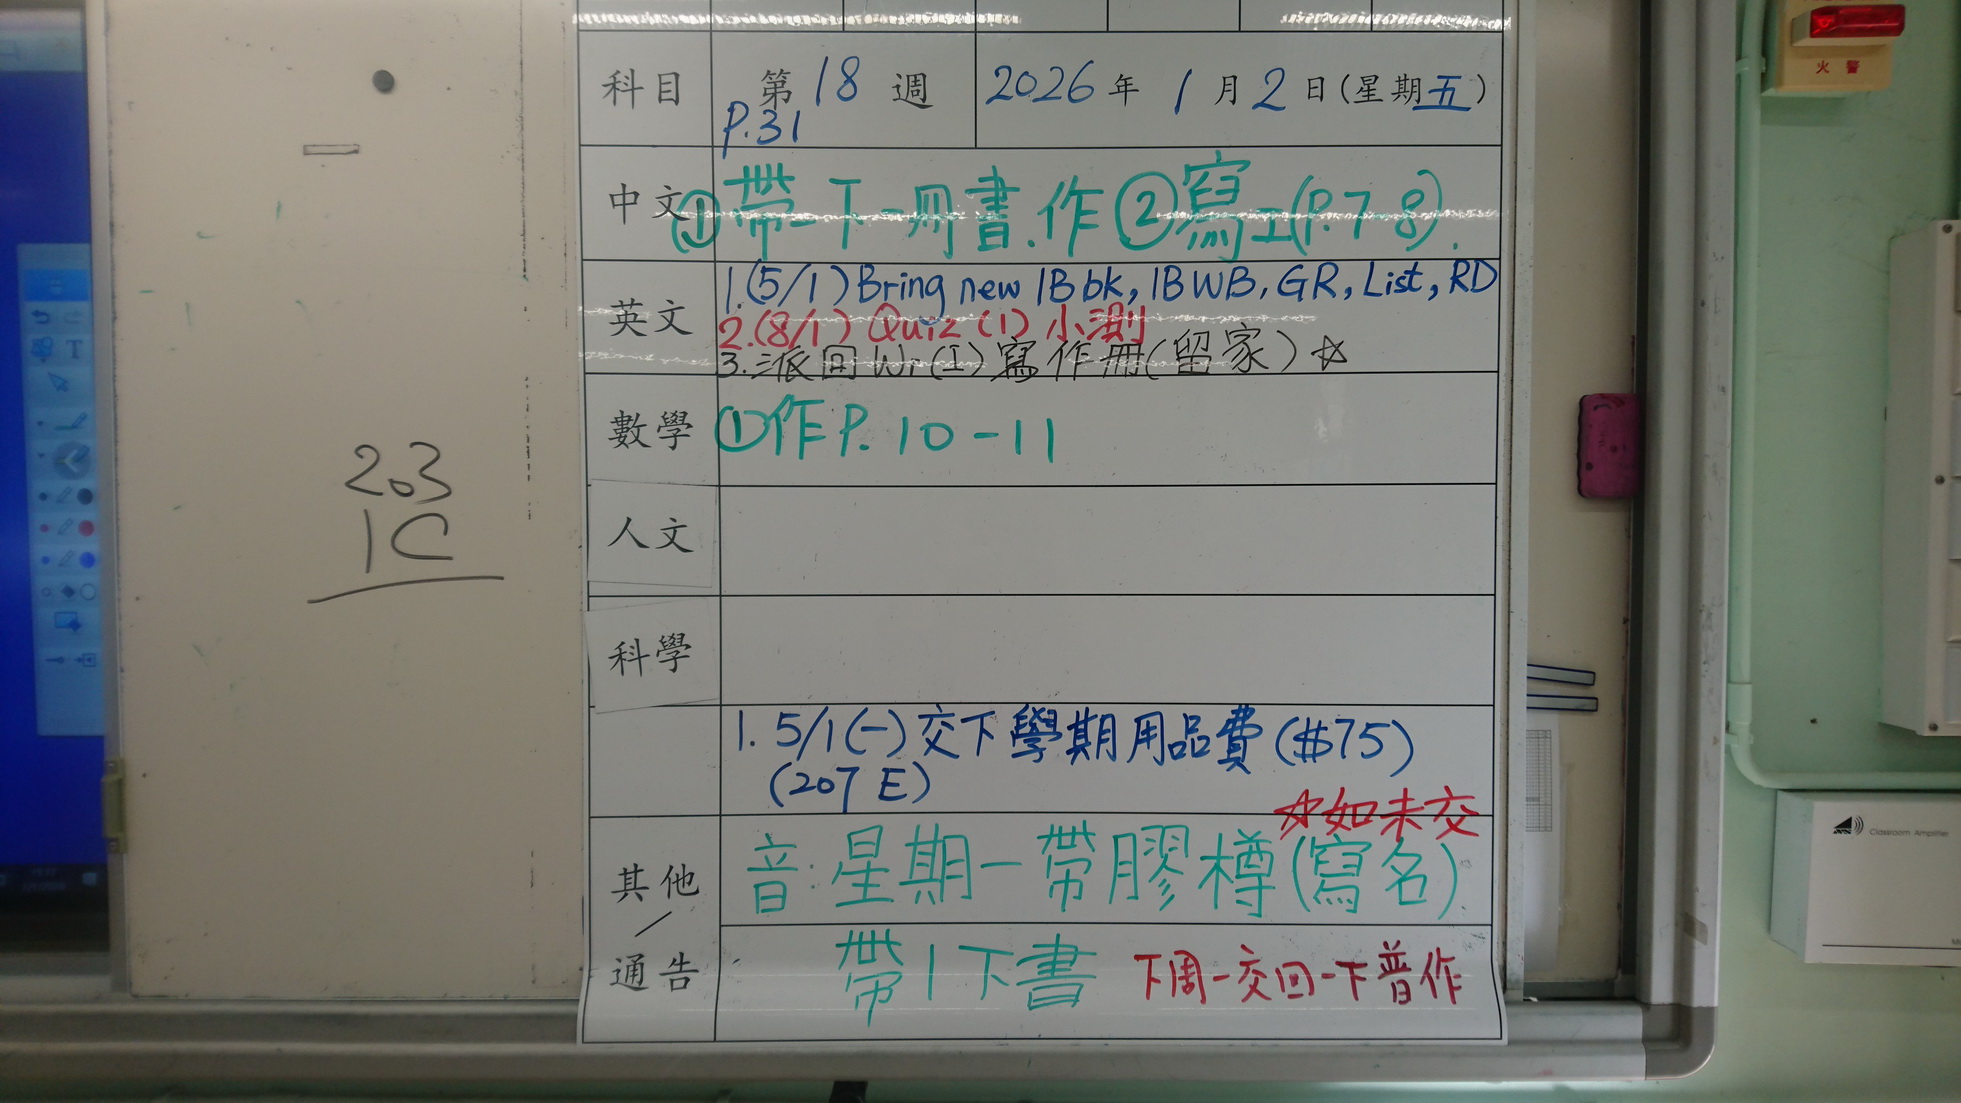 科目 第18週 2026年1月2日(星期五)
P.31
中文 ①帶一下一冊書.作②寫工(P.7-8).
英文 1.(5/1)Bring new 1B bk, 1B WB, GR, List, RD
2.(8/1) Quiz (1) 小測
3.派回Wr(I)寫作冊(留家)☆
數學 ①作P.10-11
人文
科學
1. 5/1(一)交下學期用品費($75)
(207 E)
☆如未交
其他/通告
音:星期一帶膠樽(寫名)
帶1下書 下周一交回一下普作
203
1C
火警
Classroom Amplifier